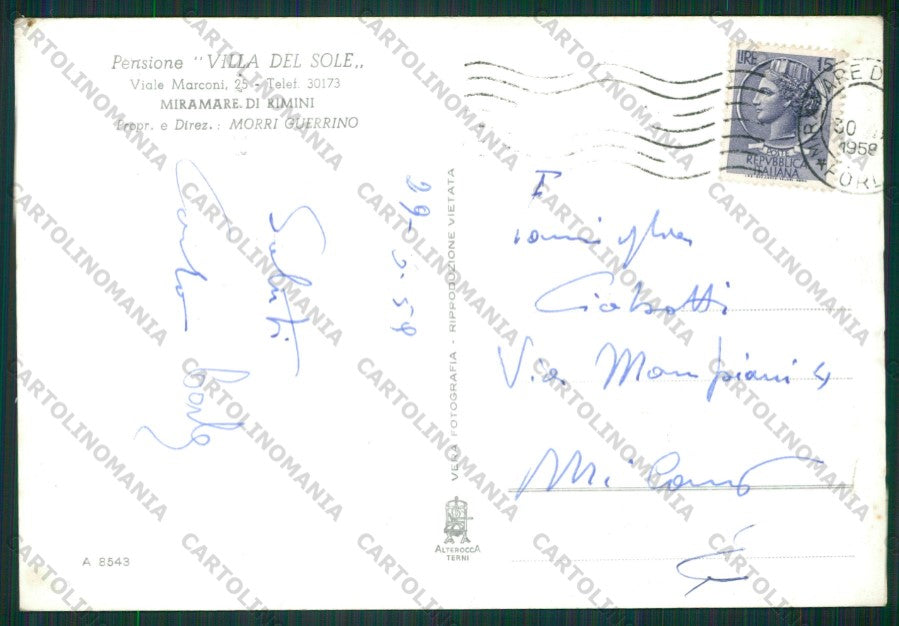 Pensione "VILLA DEL SOLE„
Viale Marconi, 25 - Telef. 30173
MIRAMARE DI RIMINI
Propr. e Direz.: MORRI GUERRINO
LIRE 15
POSTE
REPVBBLICA
ITALIANA
MIRAMARE D
30
1958
FORL
Saluti
Carlo
VERA FOTOGRAFIA - RIPRODUZIONE VIETATA
Famiglia
Ciabatti
Via Mompiani 4
Milano
ALTEROCCA
TERNI
A 8543
CARTOLINOMANIA